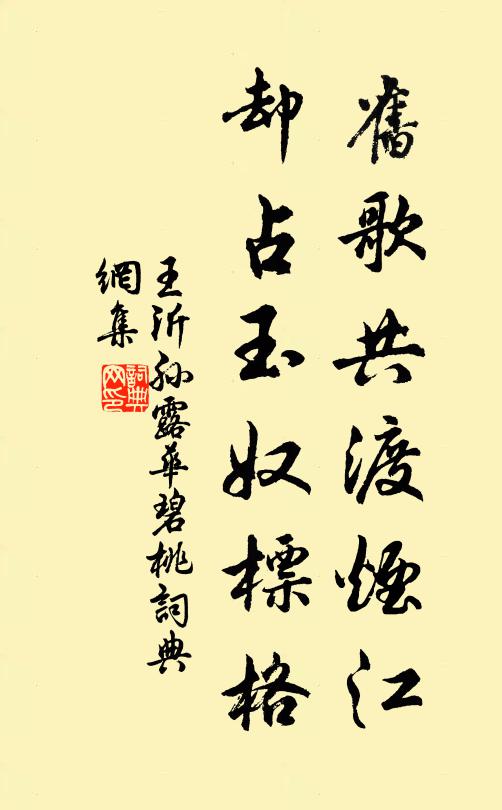 舊歌共渡煙江
却占玉奴標格
王沂孫露華碧桃詞典
網集
詞典
网印